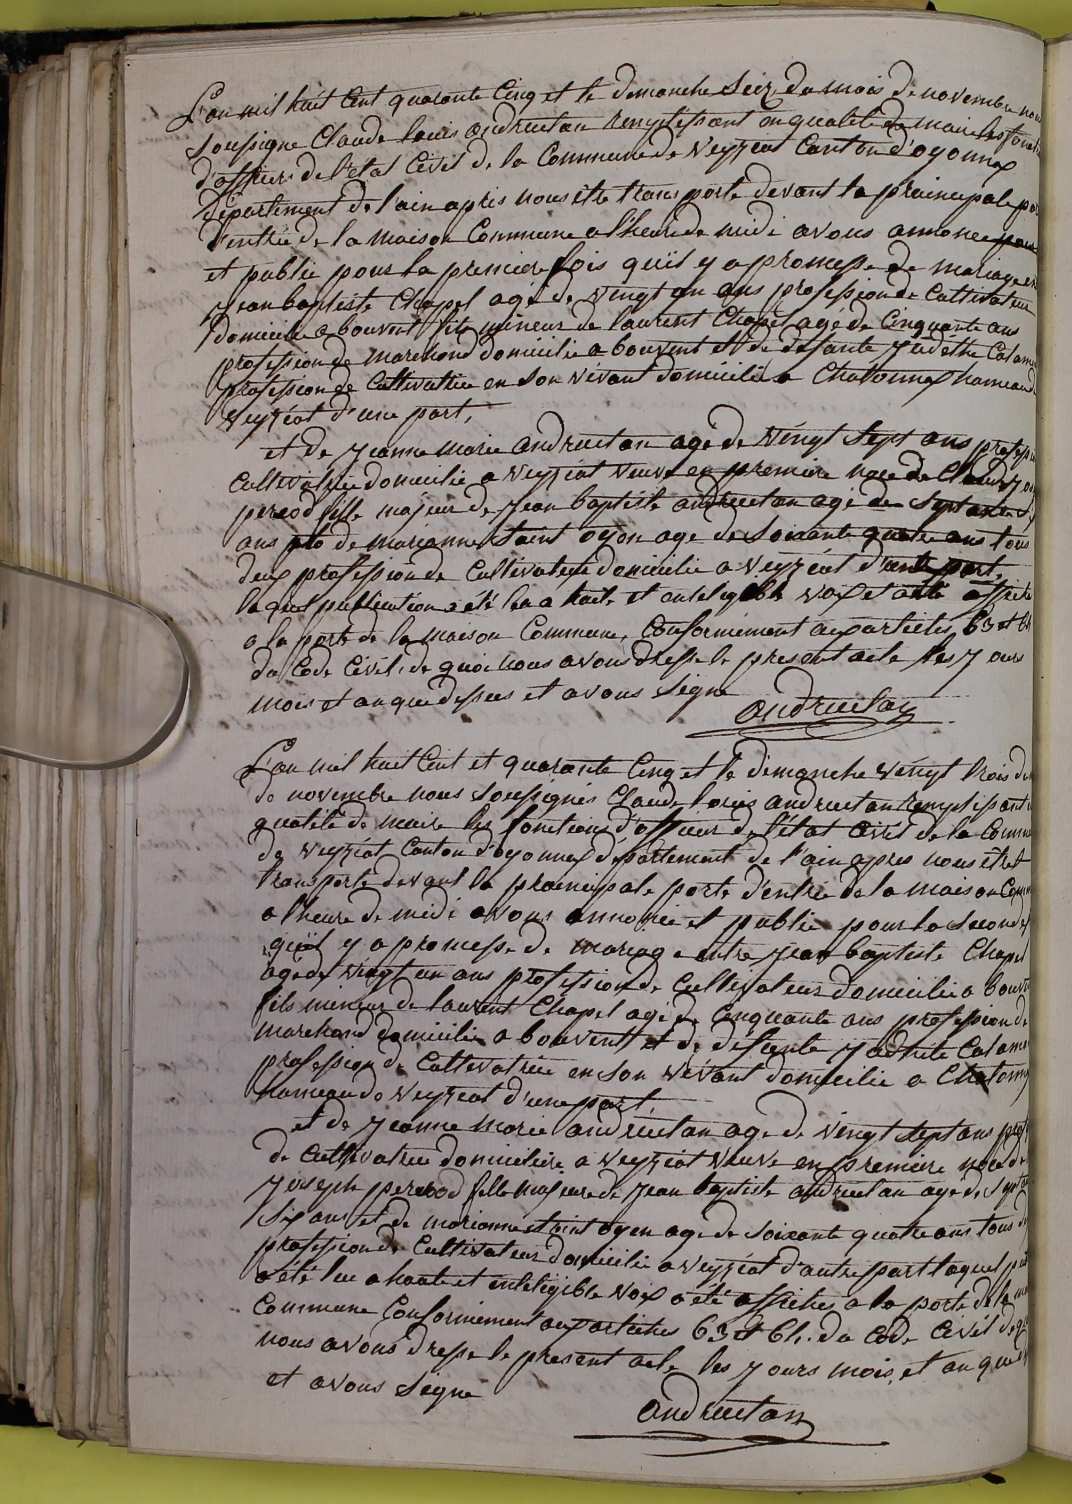 L'an mil huit Cent quarante Cinq et le dimanche Seiz du mois de novembre nous
Soussigne Claude louis andruetan Remplissant en qualité de maire les foncti
d'officier de l'etat Civil de la Commune de Veyziat Canton d'oyonnax
département de l'ain apris nous être transporté devant la prainepale por
d'entrée de la maison Commune a l'heure de midi avous annoncé
et publié pour la premiere fois quïl y a promesse de mariage en
Jean baptiste Chapel agé de vingt un ans profession de Cultivateur
domicilie a bouvent fils mineur de laurent Chapel agé de Cinquante ans
profession de marchand domicilié a bouvent et de defante Judethe Calame
profession de Cultivatrice en Son vévant domicilié a Chatonnax hameau de
Veyziat d'une part,
et de Jeanne marie andruetan age de Vingt Sept ans profession
Cultivatrice domicilié a Veyziat Veuve en premiere noce de
pereod fille majeur de Jean baptiste andruetan age de Septante
ans et de marianne Saint oyon age de Soixante quatre ans tous
deux profession de Cultivateur domicilie a Veyziat d'autre part,
laquel publication a été lu a haute et inteligible voix et a été affiché
a la porte de la maison Commune, Conformement aux articles 63 et 64
du Code Civil, de quoi nous avous dresse le present acte les Jours
mois et an que dessus et avous Signé
andruetan
L'an mil huit Cent et quarante Cinq et le dimanche Vingt trois de
de novembre nous Soussignés Claude louis andruetan Remplissant
qualité de maire les fonctions d'officier de l'état Civil de la Commu
de Veyziat Canton d'oyonnax département de l'ain apres nous être
transporté devant la prainepale porte d'entrée de la maison Com
a l'heure de midi avous annoncé et publié pour la Seconde
quïl y a promesse de mariage entre Jean baptiste Chapel
agé de vingt un ans profession de Cultivateur domicilié a bouve
fils mineur de laurent Chapel agé de Cinquante ans profession de
marchand domicilié a bouvent et de defante Judhite Calame
profession de Cultivatrice en Son Vévant domicilié a Chatonn
hameau de Veyziat d'une part,
et de Jeanne Marie andruetan age de Vingt Sept ans prof
de Cultivatrice domiciliée a Veyziat Veuve en premiere noce de
Joseph pereod fille majeure de Jean baptiste andruetan agé de Septan
Six ans et de marianne Saint oyen age de Soixante quatre ans tous d
profession de Cultivateur domicilié a Veyziat d'autre part laquel
a été lu a haute et inteligible Voix a été affichez a la porte de la
Commune Conformement aux articles 63 et 64. du Code Civil de q
nous avous dresse le present acte les Jours mois et an que
et avous Signé
andruetan